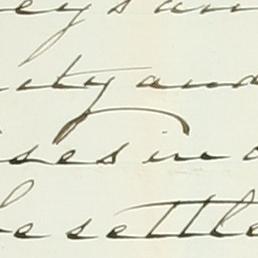 eys an
ity and
ises in
be settle